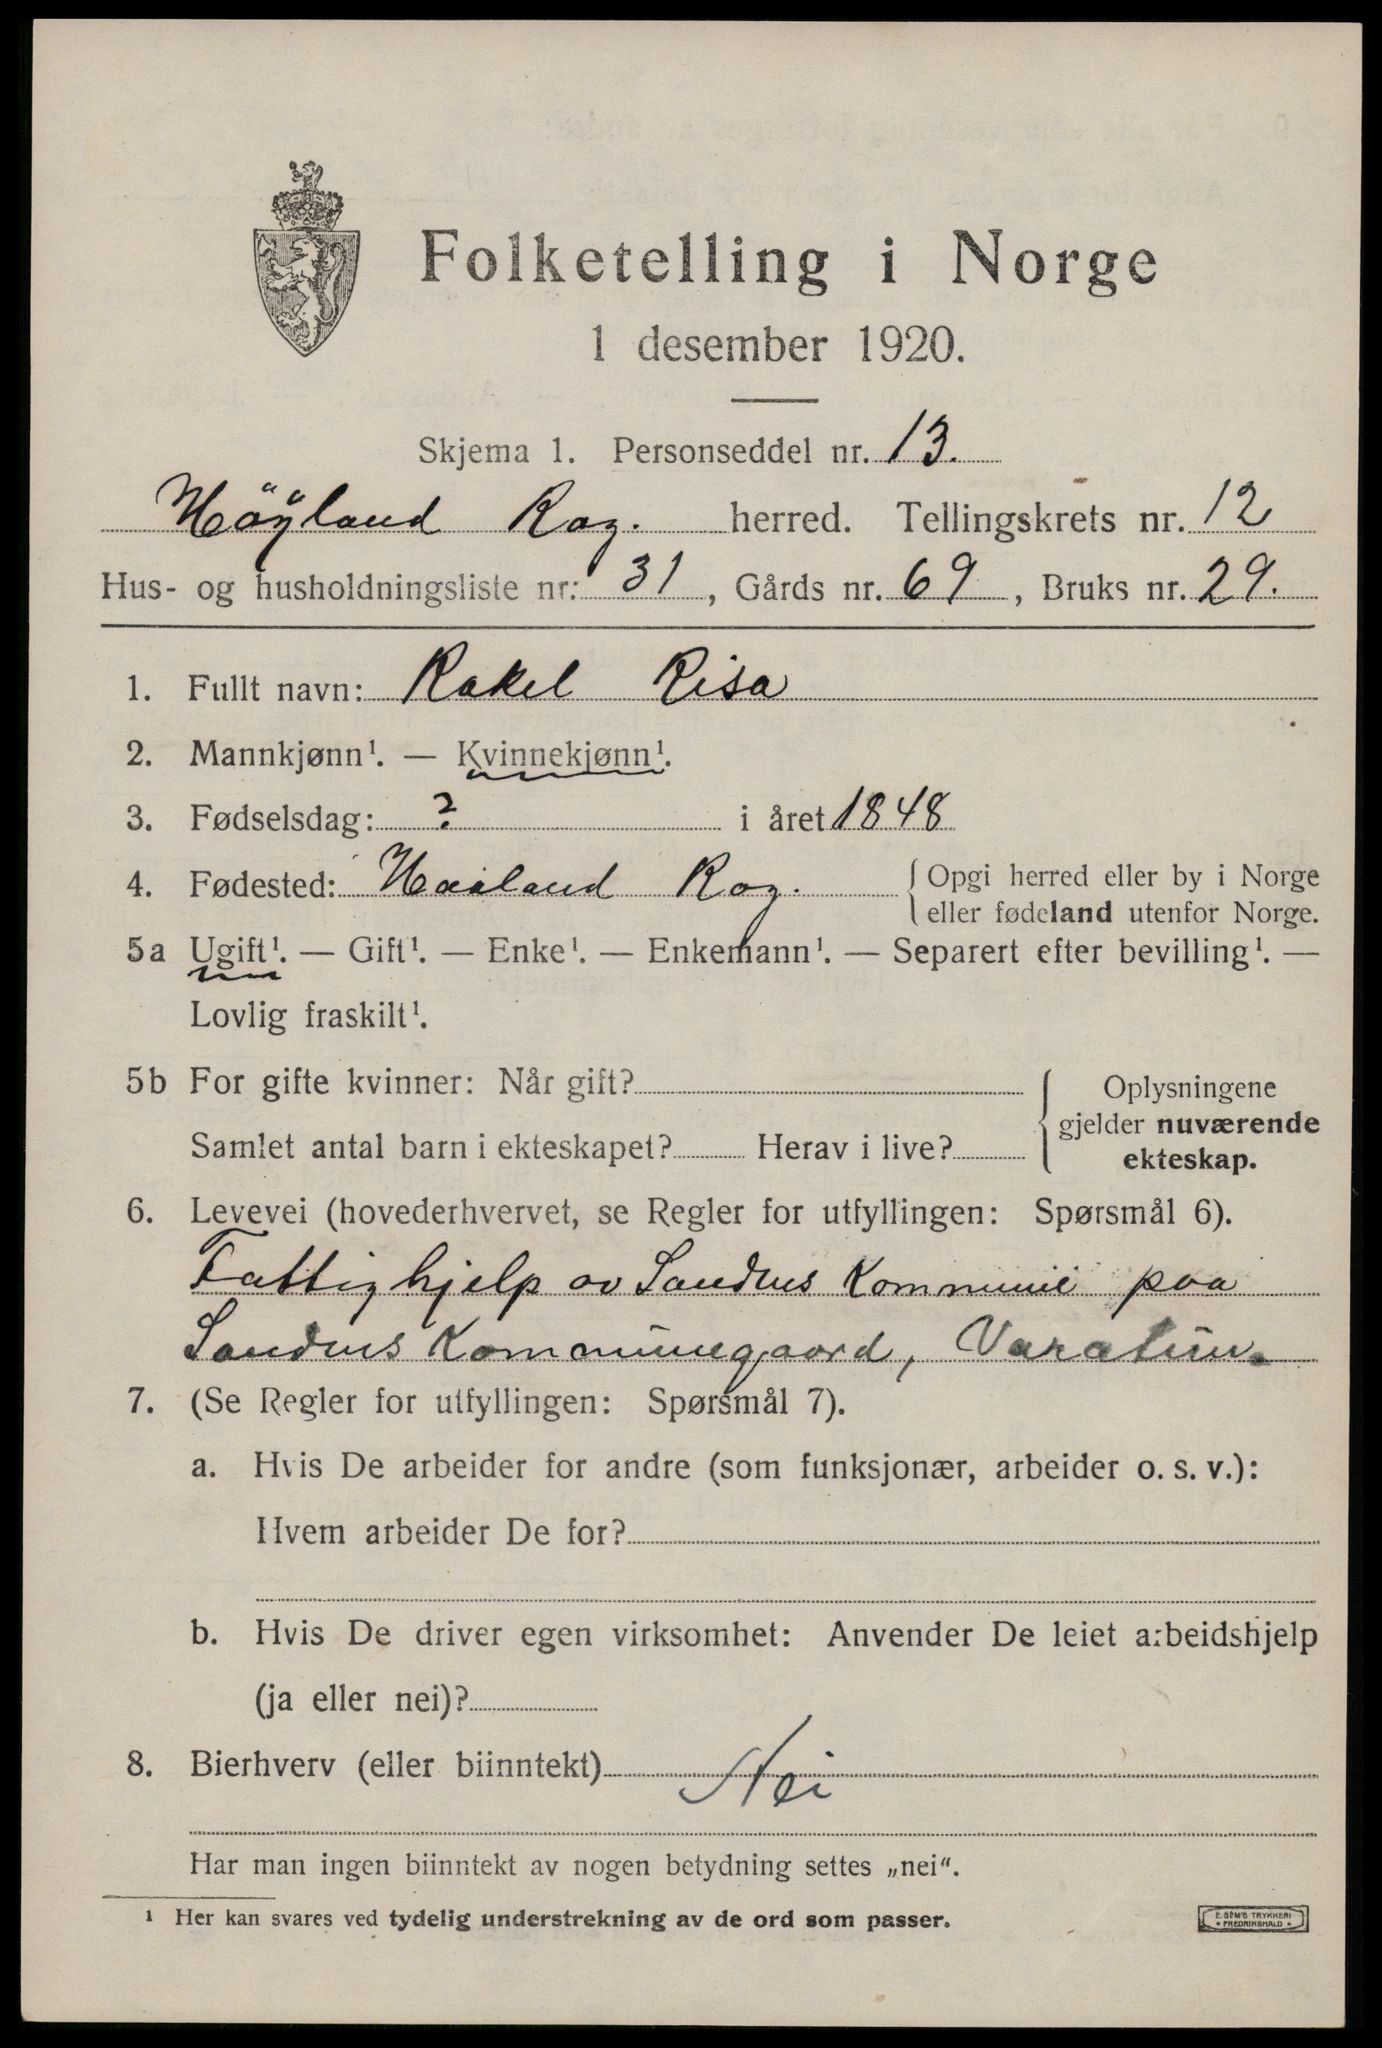 Folketelling i Norge
1 desember 1920.
Skjema 1. Personseddel nr. 13.
Höÿland Rog. herred. Tellingskrets nr. 12
Hus- og husholdningsliste nr: 31, Gårds nr. 69, Bruks nr. 29.
1. Fullt navn: Rakel Risa
2. Mannkjønn¹. — Kvinnekjønn¹.
3. Fødselsdag: ? i året 1848
4. Fødested: Haaland Rog. { Opgi herred eller by i Norge
eller fødeland utenfor Norge.
5a Ugift¹. — Gift¹. — Enke¹. — Enkemann¹. — Separert efter bevilling¹. —
Lovlig fraskilt¹.
5b For gifte kvinner: Når gift? { Oplysningene
gjelder nuværende
Samlet antal barn i ekteskapet? Herav i live? ekteskap.
6. Levevei (hovederhvervet, se Regler for utfyllingen: Spørsmål 6).
Fattighjelp av Sandnes Kommune paa
Sandnes Kommunegaard, Varatun.
7. (Se Regler for utfyllingen: Spørsmål 7).
a. Hvis De arbeider for andre (som funksjonær, arbeider o. s. v.):
Hvem arbeider De for?
b. Hvis De driver egen virksomhet: Anvender De leiet arbeidshjelp
(ja eller nei)?
8. Bierhverv (eller biinntekt) Nei
Har man ingen biinntekt av nogen betydning settes „nei“.
¹ Her kan svares ved tydelig understrekning av de ord som passer.
E. SEM'S TRYKKERI
• FREDRIKSHALD •